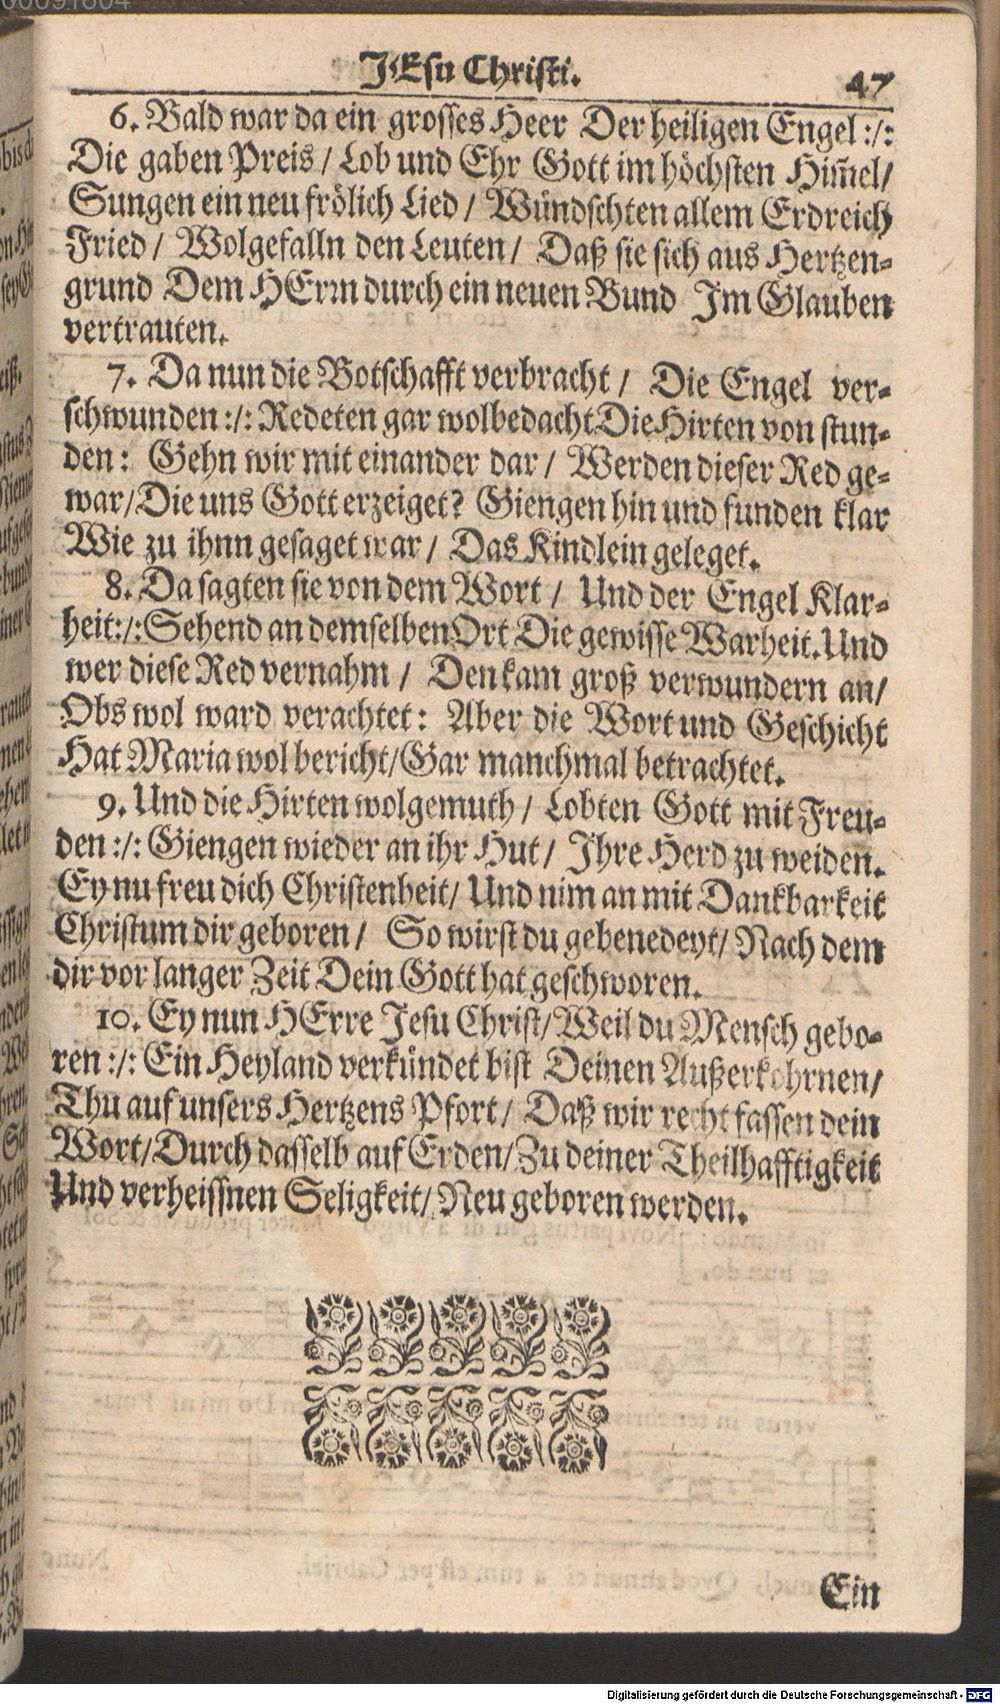 JEsu Christi. 47
6. Bald war da ein grosses Heer Der heiligen Engel :/:
Die gaben Preis / Lob und Ehr Gott im höchsten Him̄el/
Sungen ein neu frölich Lied / Wündschten allem Erdreich
Fried / Wolgefalln den Leuten / Daß sie sich aus Hertzen-
grund Dem HErrn durch ein neuen Bund Im Glauben
vertrauten.
7. Da nun die Botschafft verbracht / Die Engel ver-
schwunden :/: Redeten gar wolbedacht Die Hirten von stun-
den : Gehn wir mit einander dar / Werden dieser Red ge-
war/Die uns Gott erzeiget? Giengen hin und funden klar
Wie zu ihnn gesaget war / Das Kindlein geleget.
8. Da sagten sie von dem Wort / Und der Engel Klar-
heit:/:Sehend an demselben Ort Die gewisse Warheit. Und
wer diese Red vernahm / Den kam groß verwundern an/
Obs wol ward verachtet : Aber die Wort und Geschicht
Hat Maria wol bericht/Gar manchmal betrachtet.
9. Und die Hirten wolgemuth / Lobten Gott mit Freu-
den :/: Giengen wieder an ihr Hut / Ihre Herd zu weiden.
Ey nu freu dich Christenheit/ Und nim an mit Dankbarkeit
Christum dir geboren / So wirst du gebenedeyt/ Nach dem
dir vor langer Zeit Dein Gott hat geschworen.
10. Ey nun HErre Jesu Christ/Weil du Mensch gebo-
ren :/: Ein Heyland verkündet bist Deinen Außerkohrnen/
Thu auf unsers Hertzens Pfort / Daß wir recht fassen dein
Wort/Durch dasselb auf Erden/Zu deiner Theilhafftigkeit
Und verheissnen Seligkeit/ Neu geboren werden.
Ein
Digitalisierung gefördert durch die Deutsche Forschungsgemeinschaft - DFG